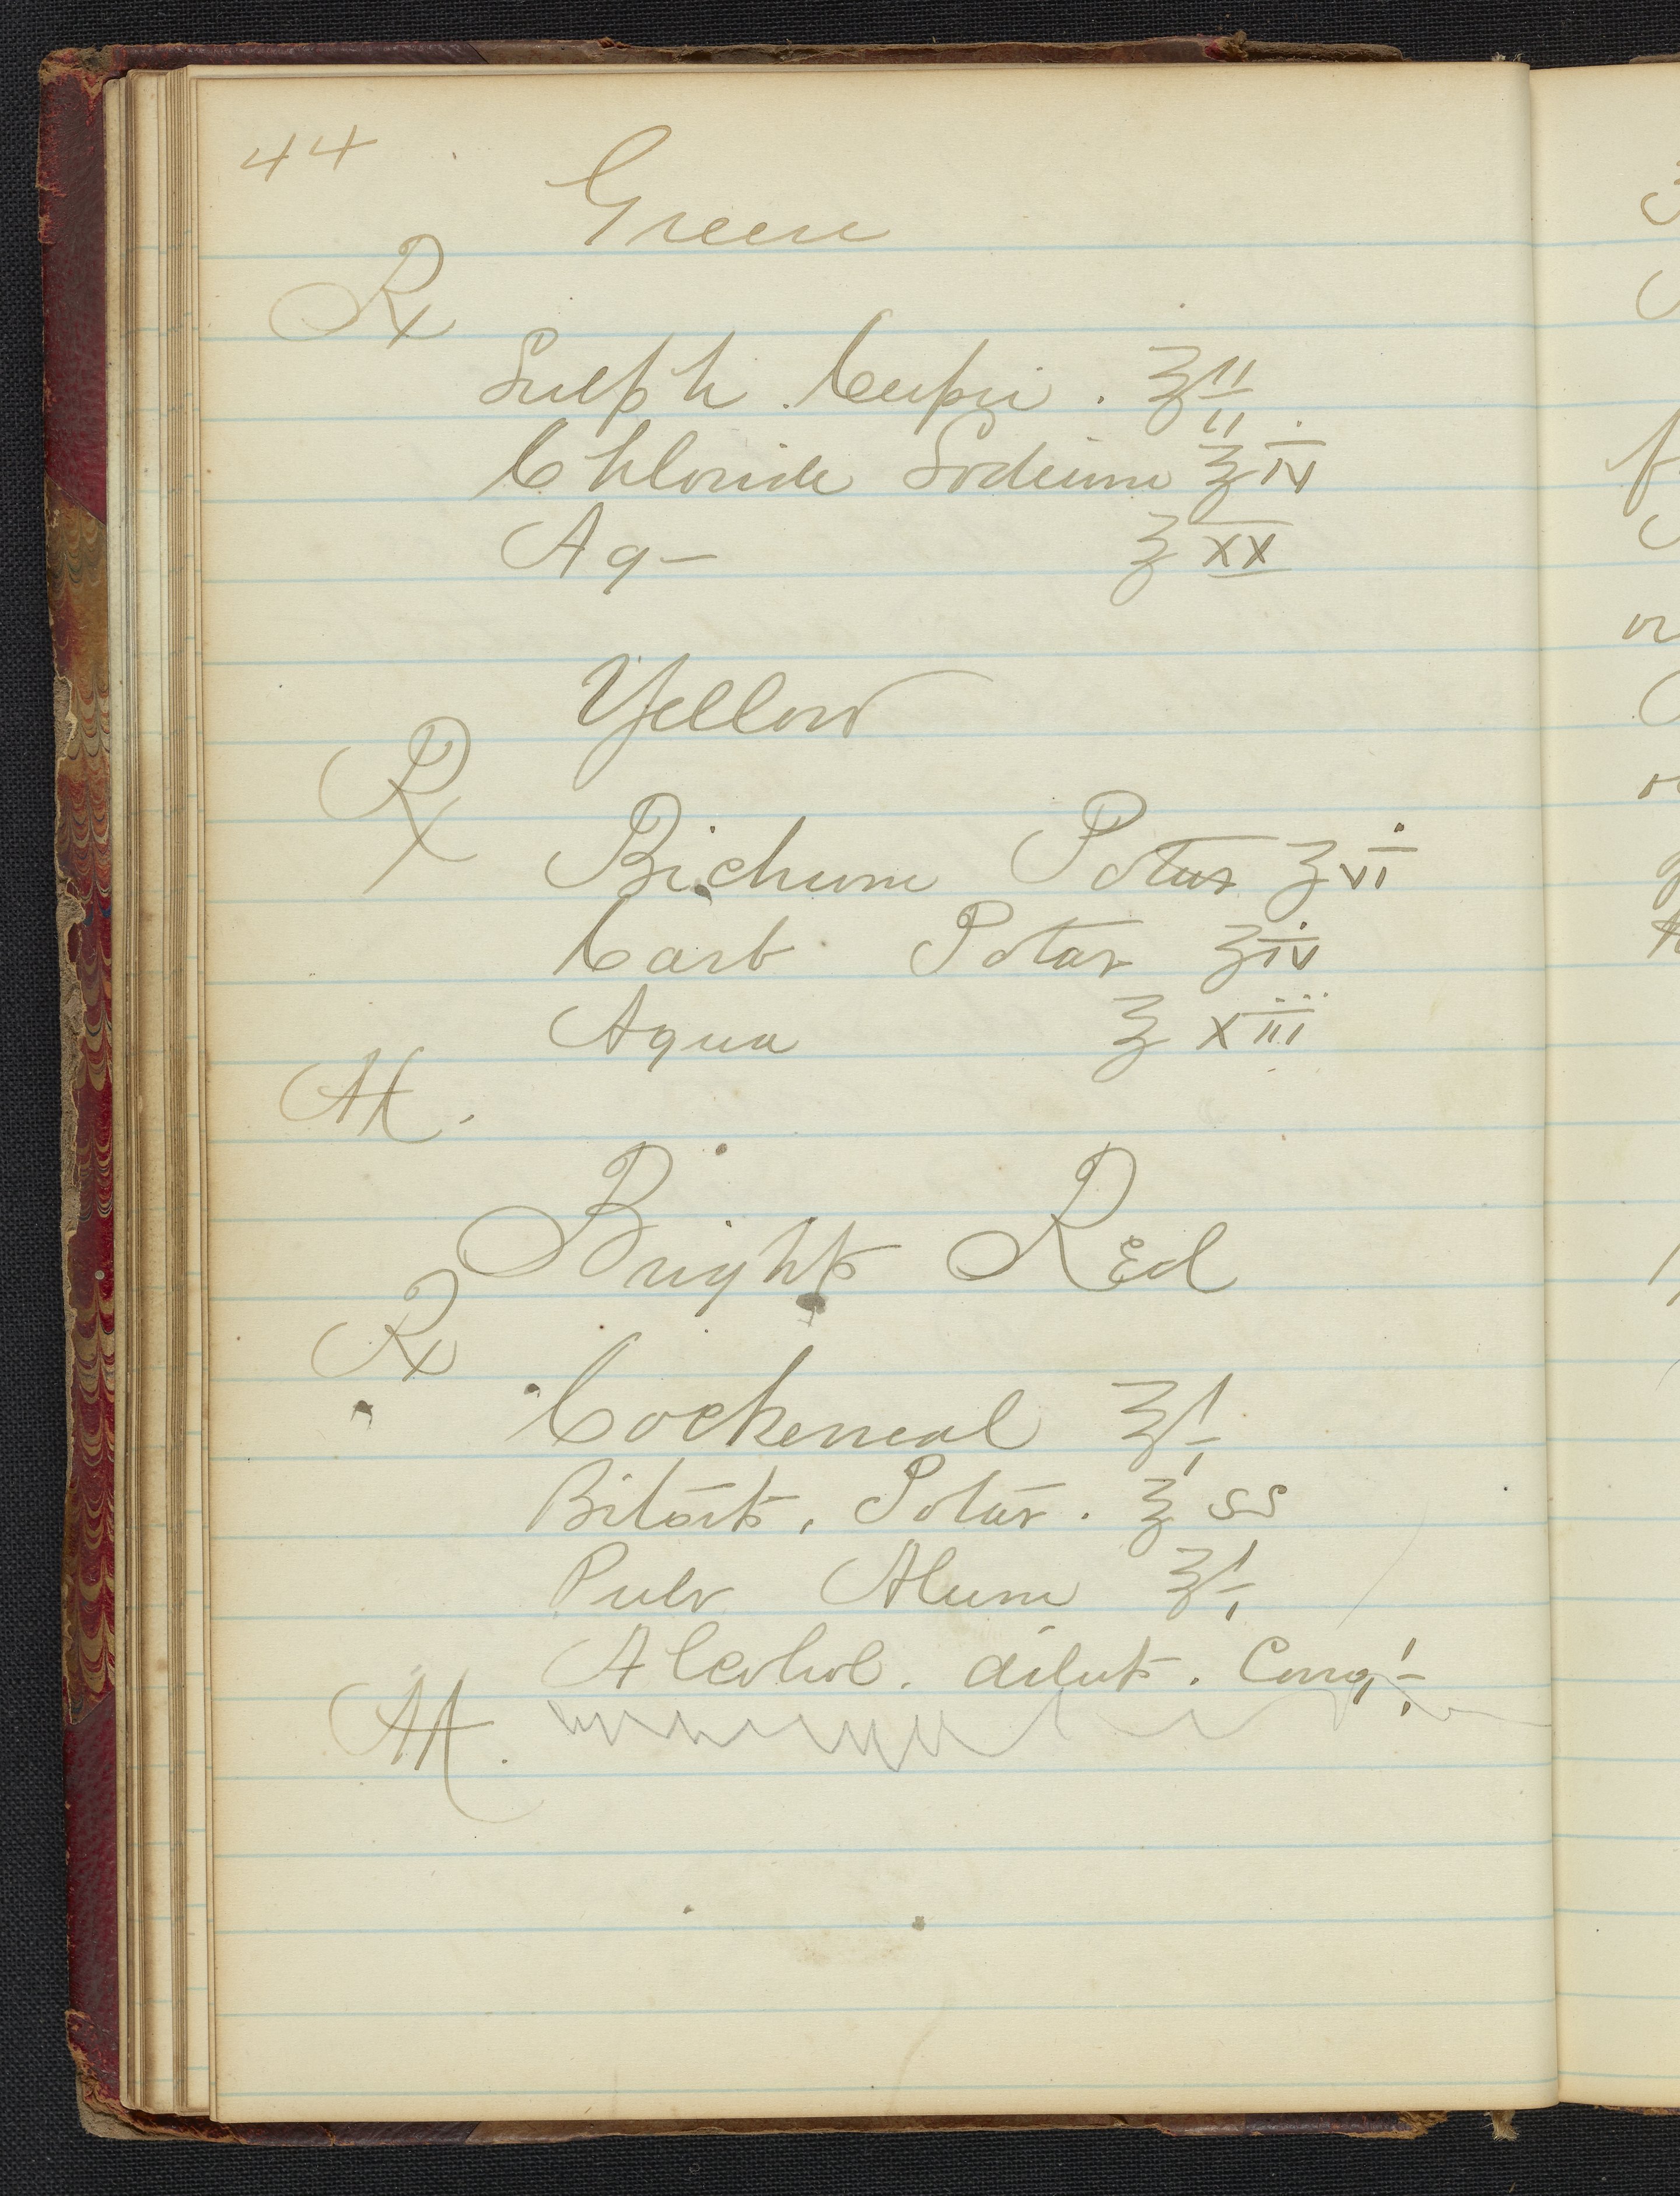 44
Green
Rx
Sulph. Cupri. ℥ii
Chloride Sodium ℥iv
Aq—
℥xx
Yellow
Rx
Bichrom Potas ℥vi
Carb Potas ℥iv
Aqua ℥xiii
M.
Bright Red
Rx
Cockeneal ℥i
Bitart. Potas. ℥ss
Pulv Alum ℥i
Alcohol. dilut. Cong i
M.